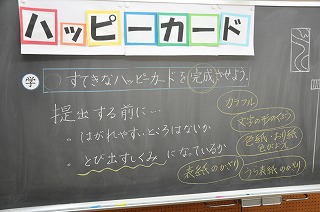 ハッピーカード
学 すてきなハッピーカードを完成させよう。
提出する前に…
・はがれやすいところはないか
・とび出すしくみになっているか
カラフル
文字の形のくふう
色紙・おり紙
表紙のかざり
うら表紙のかざり